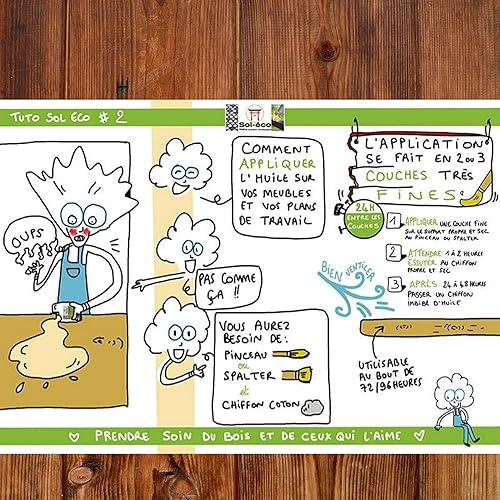 TUTO SOL ECO # 2
Sol-éco
OUPS
COMMENT
APPLIQUER
L'HUILE SUR
VOS MEUBLES
ET VOS PLANS
DE TRAVAIL
PAS COMME
ÇA !!
VOUS AUREZ
BESOIN DE :
PINCEAU
OU
SPALTER
et
CHIFFON COTON
L'APPLICATION
SE FAIT EN 2 ou 3
COUCHES TRÈS
FINES
24H
ENTRE LES
COUCHES
1 APPLIQUER UNE COUCHE FINE
SUR LE SUPPORT PROPRE ET SEC
AU PINCEAU OU SPALTER
2 ATTENDRE 1 à 2 HEURES
ESSUYER AU CHIFFON
PROPRE ET SEC
3 APRÈS 24 à 48 HEURES
PASSER UN CHIFFON
IMBIBÉ D'HUILE
BIEN VENTILER
UTILISABLE
AU BOUT DE
72/96 HEURES
PRENDRE SOIN DU BOIS ET DE CEUX QUI L'AIME